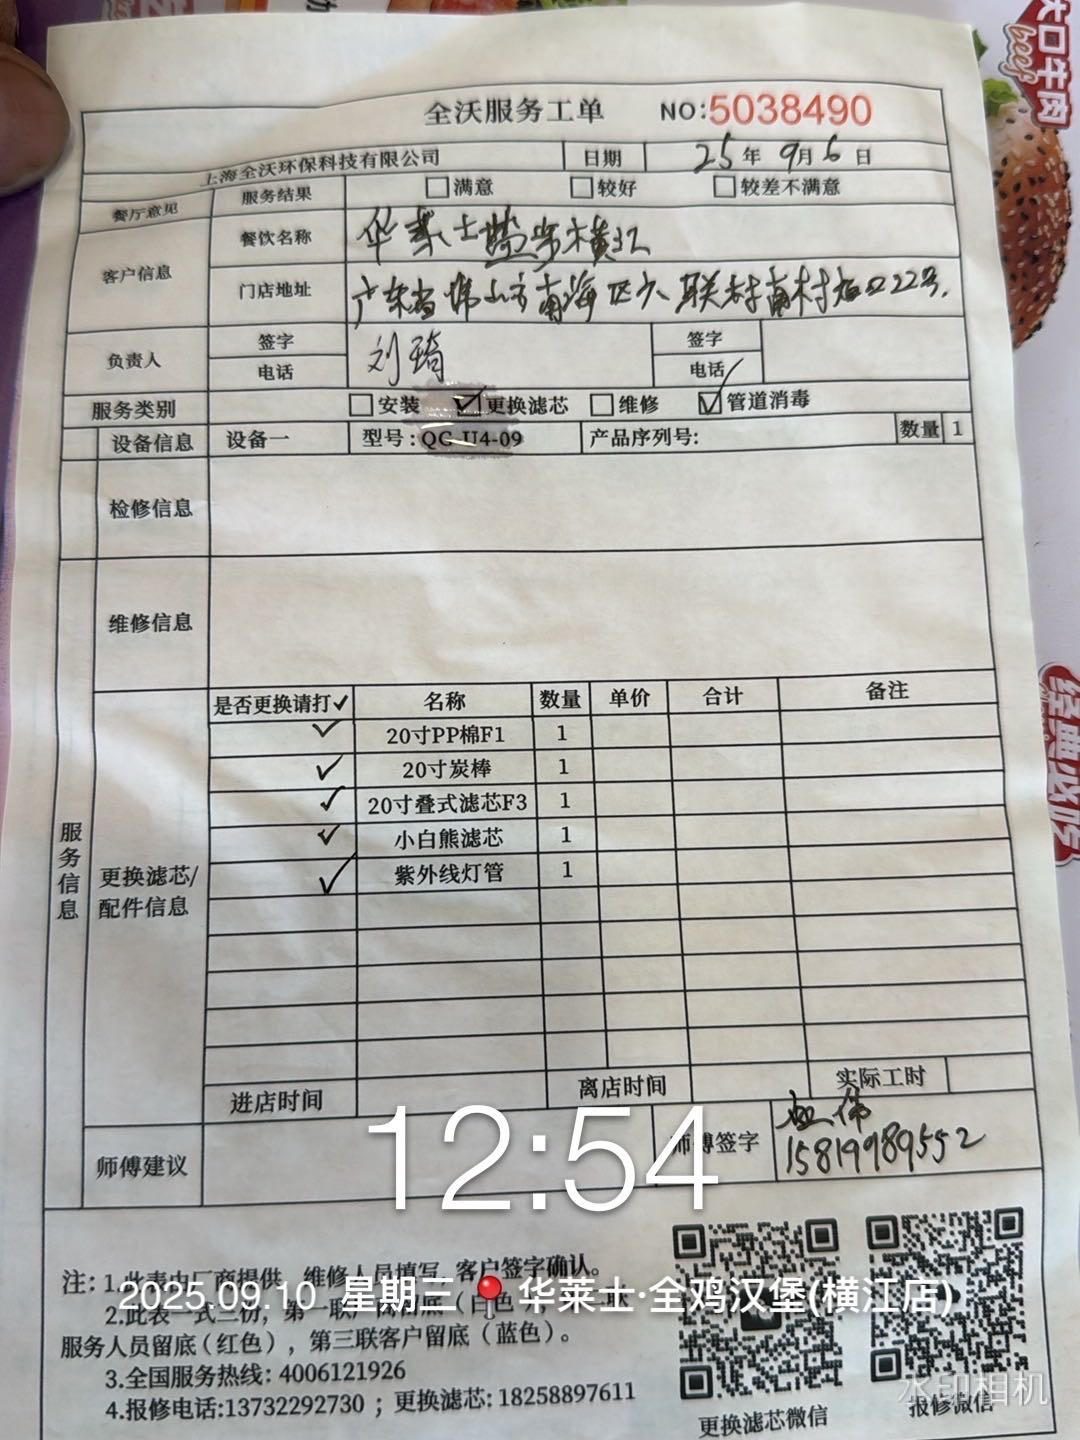 大口牛肉
beef
全沃服务工单 NO:5038490
上海全沃环保科技有限公司 日期 25年9月6日
餐厅意见 服务结果 满意 较好 较差不满意
客户信息 餐饮名称 华莱士 横江
门店地址 广东省佛山市南海区六联村南村 22号.
负责人 签字 刘琦 签字
电话 电话
服务类别 安装 ✓更换滤芯 维修 ✓管道消毒
设备信息 设备一 型号：QG-U4-09 产品序列号： 数量 1
检修信息
维修信息
服务信息
更换滤芯/
配件信息
是否更换请打✓ 名称 数量 单价 合计 备注
✓ 20寸PP棉F1 1
✓ 20寸炭棒 1
✓ 20寸叠式滤芯F3 1
✓ 小白熊滤芯 1
✓ 紫外线灯管 1
进店时间 离店时间 实际工时
师傅建议 师傅签字 伟
15819989552
12:54
注：1.此表由厂商提供，维修人员填写，客户签字确认。
2025.09.10 星期三 华莱士·全鸡汉堡(横江店)
2.此表一式三份，第一联
服务人员留底（红色），第三联客户留底（蓝色）。
3.全国服务热线：4006121926
4.报修电话:13732292730 ；更换滤芯: 18258897611
更换滤芯微信 报修微信
水印相机
经典必吃